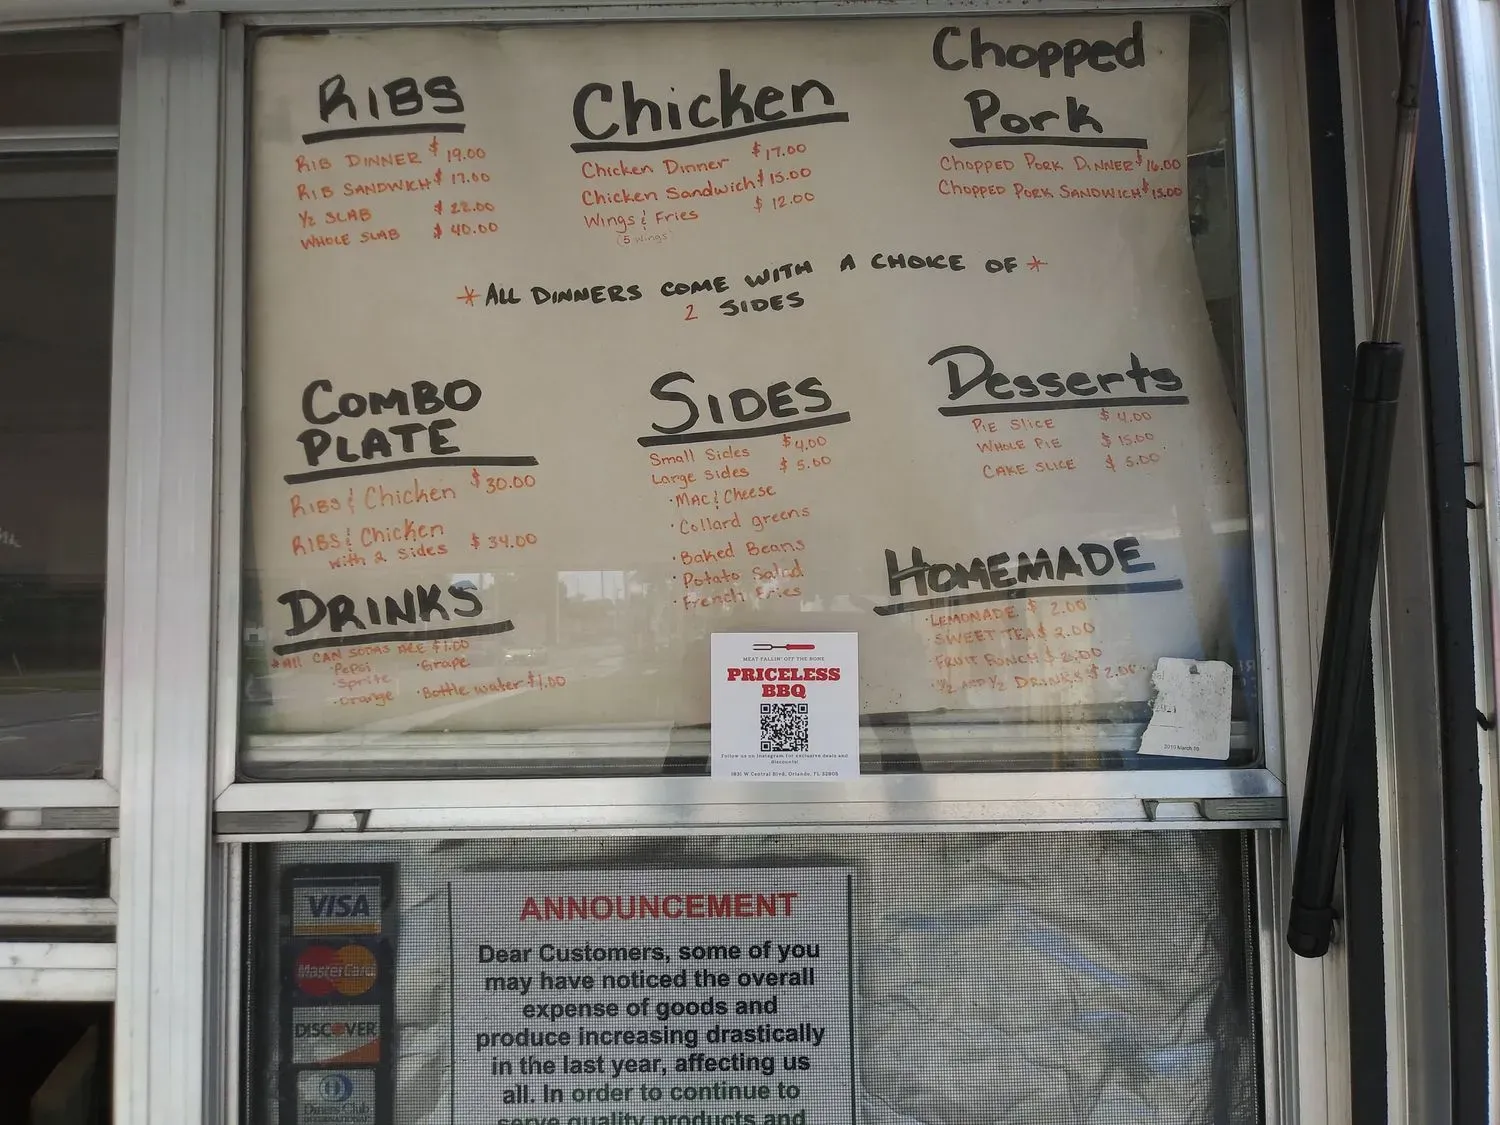 RIBS
RIB DINNER $19.00
RIB SANDWICH $17.00
½ SLAB $22.00
WHOLE SLAB $40.00
Chicken
Chicken Dinner $17.00
Chicken Sandwich $15.00
Wings & Fries $12.00
(5 wings)
Chopped
Pork
CHOPPED PORK DINNER $16.00
CHOPPED PORK SANDWICH $15.00
*ALL DINNERS COME WITH A CHOICE OF*
2 SIDES
COMBO
PLATE
RIBS & Chicken $30.00
RIBS & Chicken
with 2 Sides $34.00
SIDES
Small Sides $4.00
Large Sides $5.00
·Mac & Cheese
·Collard greens
·Baked Beans
·Potato Salad
·French Fries
Desserts
PIE SLICE $4.00
WHOLE PIE $15.00
CAKE SLICE $5.00
DRINKS
*All CAN SODAS ARE $1.00
·Pepsi ·Grape
·Sprite
·Orange ·Bottle water $1.00
HOMEMADE
·LEMONADE $2.00
·SWEET TEA $2.00
·FRUIT PUNCH $2.00
·½ AND ½ DRINKS $2.00
MEAT FALLIN' OFF THE BONE
PRICELESS
BBQ
Follow us on Instagram for exclusive deals and
discounts!
1831 W Central Blvd, Orlando, FL 32805
2021
2010 March 10
VISA
MasterCard
DISCOVER
Diners Club
INTERNATIONAL
ANNOUNCEMENT
Dear Customers, some of you
may have noticed the overall
expense of goods and
produce increasing drastically
in the last year, affecting us
all. In order to continue to
serve quality products and